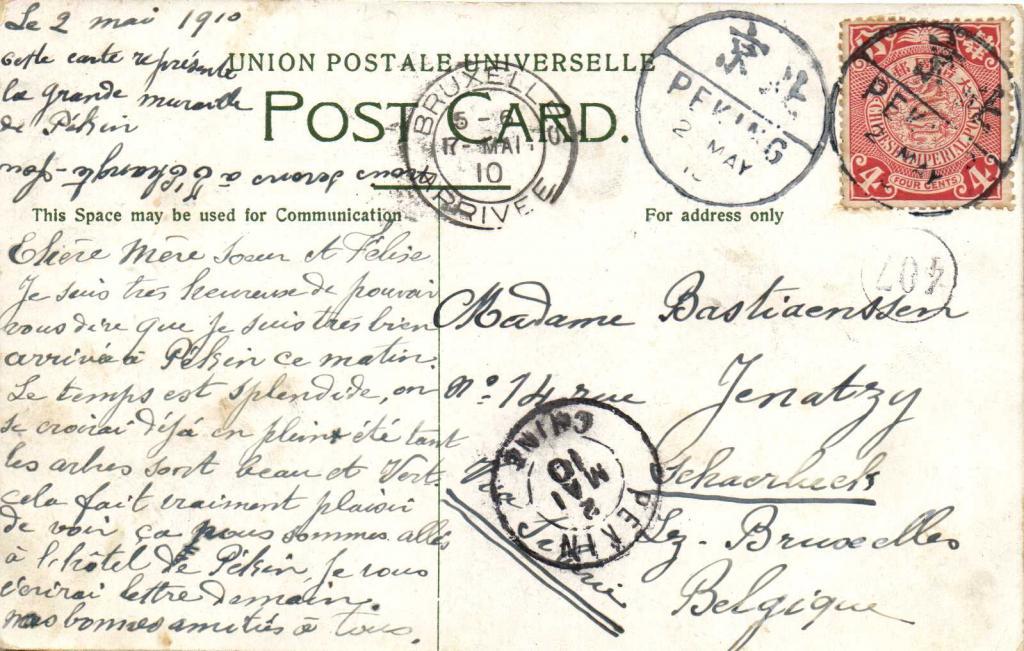 Le 2 mai 1910
cette carte représente
la grande muraille
de Pékin
nous serons à
UNION POSTALE UNIVERSELLE
POST CARD.
This Space may be used for Communication
For address only
BRUXELLES
17 - MAI
10
ARRIVEE
北京
PEKING
2 MAY
10
CHINESE IMPERIAL POST
FOUR CENTS
4 4
PEKING
2 MAY
407
Chère Mère soeur et Félise
Je suis très heureuse de pouvoir
vous dire que je suis très bien
arrivée à Pékin ce matin.
Le temps est splendide, on
se croirai déjà en plein été tant
les arbres sont beau et Vert.
cela fait vraiment plaisir
de voir ça nous sommes allés
à l'hôtel de Pékin je vous
écrirai lettre demain.
mes bonnes amitiés à tous.
Madame Bastiaenssen
No. 14 rue Jenatzy
Schaerbeek
Lez-Bruxelles
Belgique
Via Sibérie
PEKIN
2 MAI
10
CHINE